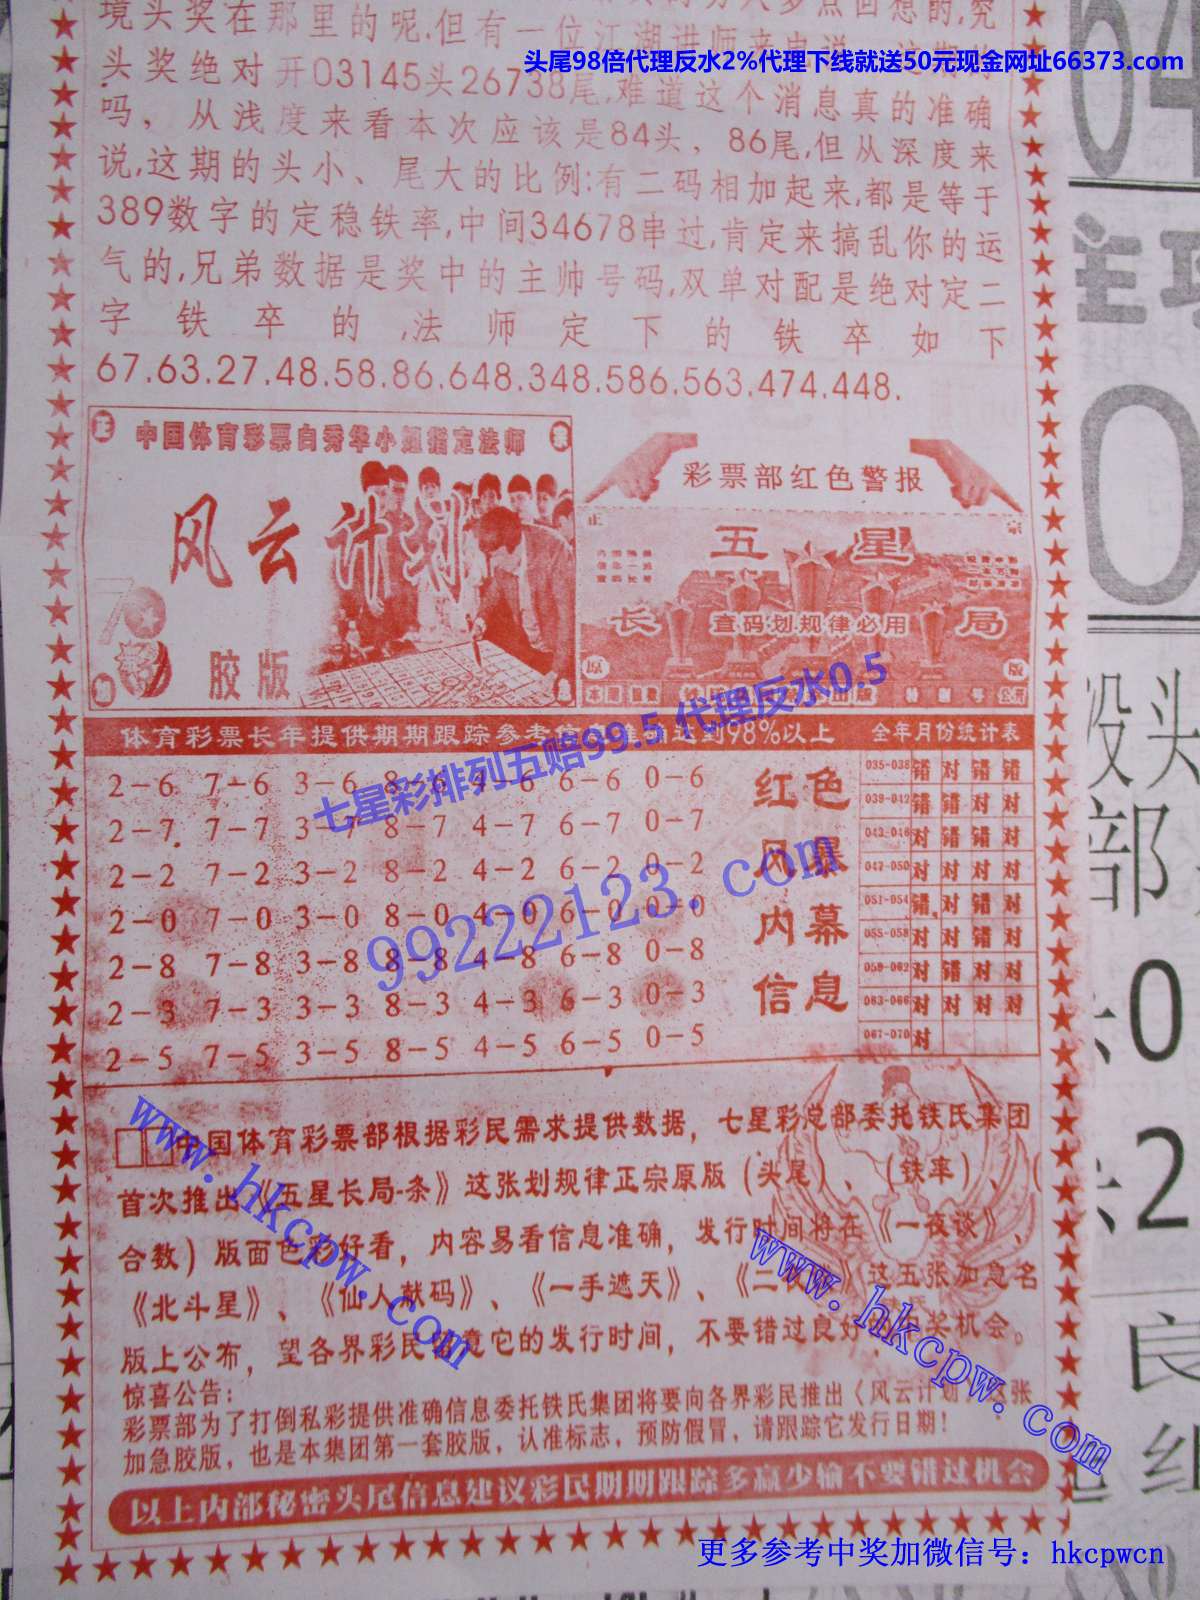 头尾98倍代理反水2%代理下线就送50元现金网址66373.com
头奖绝对开03145头26738尾,难道这个消息真的准确
吗，从浅度来看本次应该是84头，86尾,但从深度来
说,这期的头小、尾大的比例:有二码相加起来,都是等于
389数字的定稳铁率,中间34678串过,肯定来搞乱你的运
气的,兄弟数据是奖中的主帅号码,双单对配是绝对定二
字铁卒的,法师定下的铁卒如下
67.63.27.48.58.86.648.348.586.563.474.448.
中国体育彩票白秀华小姐指定法师
风云计划
胶版
彩票部红色警报
正 宗
五星
长 查码划规律必用 局
原 版
体育彩票长年提供期期跟踪参考 准确达到98%以上 全年月份统计表
七星彩排列五赔99.5 代理反水0.5
99222123.com
2-6 7-6 3-6 8-6 4-6 6-6 0-6
2-7 7-7 3-7 8-7 4-7 6-7 0-7
2-2 7-2 3-2 8-2 4-2 6-2 0-2
2-0 7-0 3-0 8-0 4-0 6-0 0-0
2-8 7-8 3-8 8-8 4-8 6-8 0-8
2-3 7-3 3-3 8-3 4-3 6-3 0-3
2-5 7-5 3-5 8-5 4-5 6-5 0-5
红色
风暴
内幕
信息
035-038 错 对 错 错
039-042 错 错 对 对
043-046 对 错 错 对
047-050 对 对 对 对
051-054 错 对 错 对
055-058 对 对 错 对
059-062 对 错 对 对
063-066 对 对 对 对
067-070 对
中国体育彩票部根据彩民需求提供数据，七星彩总部委托铁氏集团
首次推出《五星长局-条》这张划规律正宗原版（头尾）、（铁率）、（
合数）版面色彩好看，内容易看信息准确，发行时间将在《一夜谈》、
《北斗星》、《仙人献码》、《一手遮天》、《二 》这五张加急名
版上公布，望各界彩民 意它的发行时间，不要错过良好 奖机会。
惊喜公告：
彩票部为了打倒私彩提供准确信息委托铁氏集团将要向各界彩民推出《风云计划 张
加急胶版，也是本集团第一套胶版，认准标志，预防假冒，请跟踪它发行日期！
以上内部秘密头尾信息建议彩民期期跟踪多赢少输不要错过机会
www.hkcpw.com
www.hkcpw.com
更多参考中奖加微信号：hkcpwcn